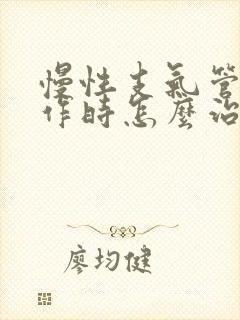 慢性支氣管
作時怎麼治
廖均健